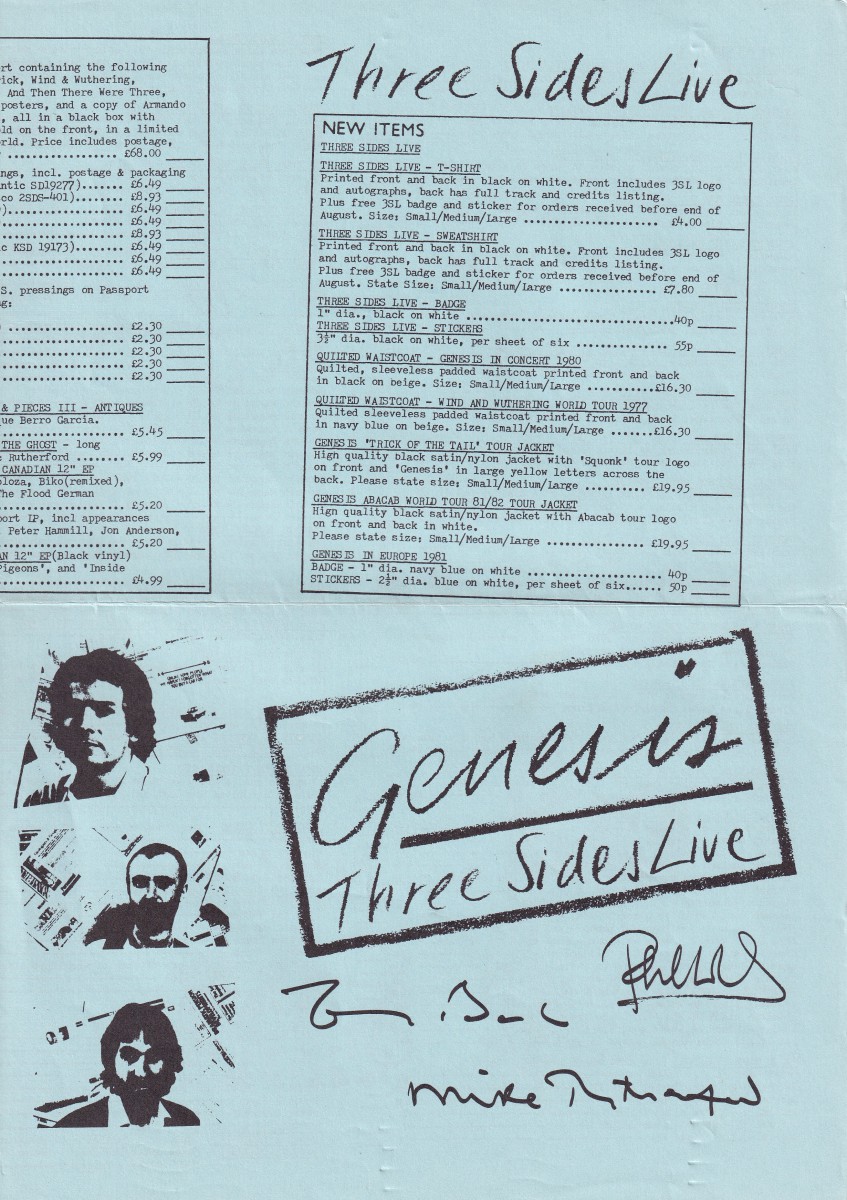 rt containing the following
ick, Wind & Wuthering,
And Then There Were Three,
posters, and a copy of Armando
, all in a black box with
ld on the front, in a limited
rld. Price includes postage,
................... £68.00
ngs, incl. postage & packaging
ntic SD19277)....... £6.49
co 2SDS-401)........ £8.93
)................... £6.49
.................... £6.49
.................... £8.93
c KSD 19173)........ £6.49
.................... £6.49
.................... £6.49
S. pressings on Passport
g:
.................... £2.30
.................... £2.30
.................... £2.30
.................... £2.30
.................... £2.30
& PIECES III - ANTIQUES
ue Berro Garcia.
.................... £5.45
THE GHOST - long
: Rutherford ....... £5.99
CANADIAN 12" EP
oloza, Biko(remixed),
The Flood German
.................... £5.20
port IP, incl appearances
Peter Hammill, Jon Anderson,
.................... £5.20
AN 12" EP(Black vinyl)
Pigeons', and 'Inside
.................... £4.99
Three Sides Live
NEW ITEMS
THREE SIDES LIVE
THREE SIDES LIVE - T-SHIRT
Printed front and back in black on white. Front includes 3SL logo
and autographs, back has full track and credits listing.
Plus free 3SL badge and sticker for orders received before end of
August. Size: Small/Medium/Large ..................... £4.00
THREE SIDES LIVE - SWEATSHIRT
Printed front and back in black on white. Front includes 3SL logo
and autographs, back has full track and credits listing.
Plus free 3SL badge and sticker for orders received before end of
August. State Size: Small/Medium/Large ............... £7.80
THREE SIDES LIVE - BADGE
1" dia., black on white ................................40p
THREE SIDES LIVE - STICKERS
3½" dia. black on white, per sheet of six .............. 55p
QUILTED WAISTCOAT - GENESIS IN CONCERT 1980
Quilted, sleeveless padded waistcoat printed front and back
in black on beige. Size: Small/Medium/Large ...........£16.30
QUILTED WAISTCOAT - WIND AND WUTHERING WORLD TOUR 1977
Quilted sleeveless padded waistcoat printed front and back
in navy blue on beige. Size: Small/Medium/Large .......£16.30
GENESIS 'TRICK OF THE TAIL' TOUR JACKET
High quality black satin/nylon jacket with 'Squonk' tour logo
on front and 'Genesis' in large yellow letters across tne
back. Please state size; Small/Medium/Large .......... £19.95
GENESIS ABACAB WORLD TOUR 81/82 TOUR JACKET
Hign quality black satin/nylon jacket with Abacab tour logo
on front and back in white.
Please state size; Small/Medium/Large ................ £19.95
GENESIS IN EUROPE 1981
BADGE - 1" dia. navy blue on white ..................... 40p
STICKERS - 2½" dia. blue on white, per sheet of six...... 50p
Genesis
Three Sides Live
Mike Rutherford